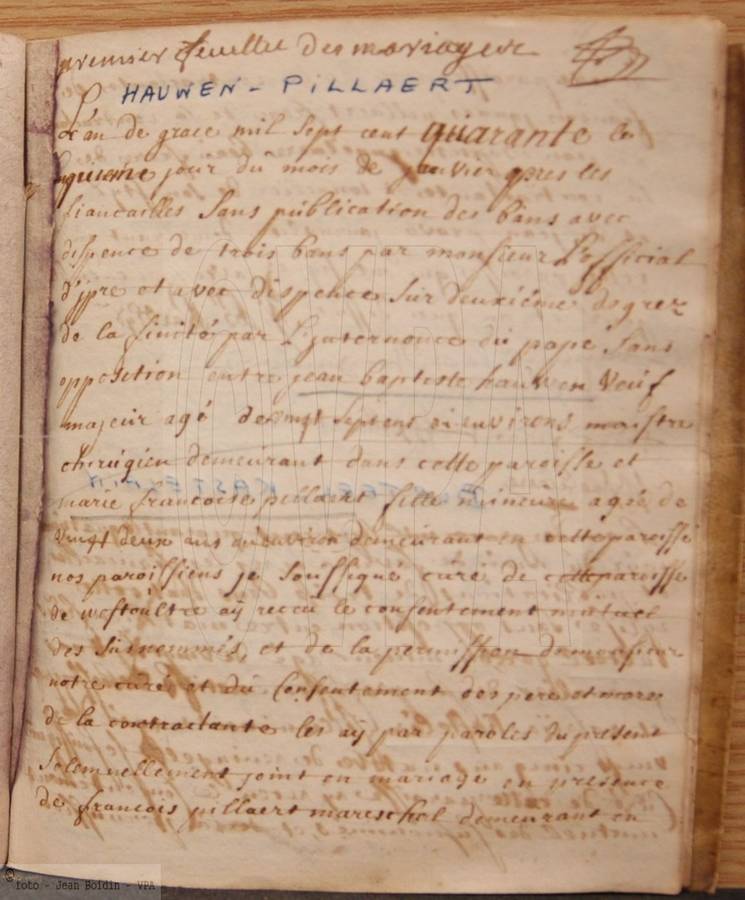 premier feuillet des mariages
HAUWEN - PILLAERT
L'an de grace mil sept cent quarante le
jour du mois de janvier apres les
fiancailles sans publication des bans avec
dispence de trois bans par monsieur L'official
d'jpre et avec dispence sur deuxiéme degrez
de la finité par L'jnternonce du pape sans
opposition entre jean baptiste hauwen veuf
majeur agé de vingt sept ans ou environs maistre
chirugien demeurant dans cette paroisse et
marie francoise pillaert fille mineure agée de
vingt deux ans ou environ demeurant en cette paroisse
nos paroissiens je soussigné curé de cette paroisse
de westoultre aÿ receu le consentement mutuel
des susnommés, et de la permission de monsieur
notre curé et du consentement des pere et mere
de la contractante les aÿ par paroles du present
solemnellement joint en mariage en presence
de francois pillaert mareschal demeurant en
© foto - Jean Boldin - VPA